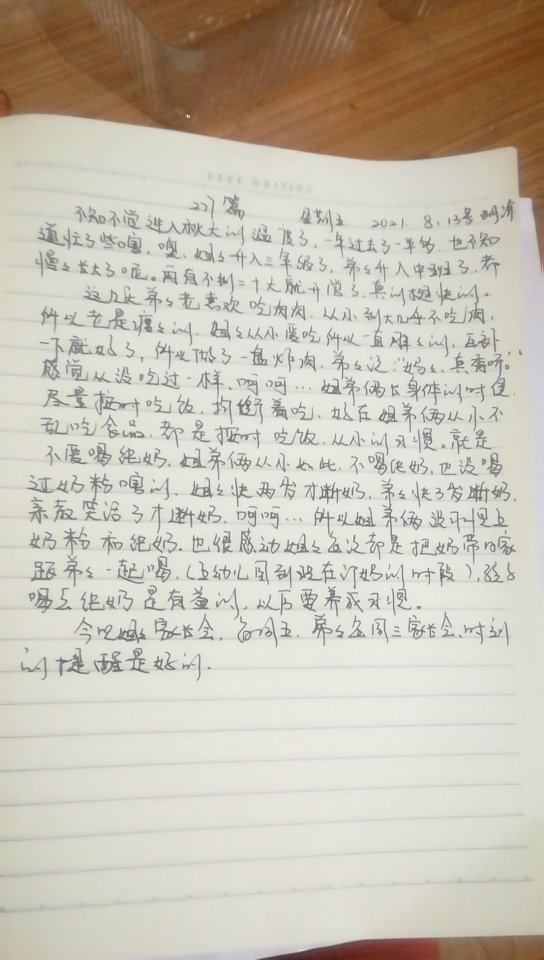 FREE WRITING
227篇 星期五 2021.8.13号 晴
不知不觉进入秋天的温度了,一年过去了一年的,也不知
道忙了些嘿,噢,姐姐升入三年级了,弟弟升入中班了,都
慢慢长大了呢。再有不到二十天就开学了,真的挺快的。
这几天弟弟老喜欢吃肉肉,从小到大几乎不吃肉,
所以老是瘦瘦的,姐姐从小爱吃所以一直胖的,互补
一下就好了,所以做了一盘炸肉,弟弟说:“妈妈,真香呀。”
感觉从没吃过一样,呵呵…姐弟俩长身体的时候,
尽量按时吃饭,均衡着吃,好在姐弟俩从小不
乱吃食品,都是按时吃饭,从小的习惯。就是
不爱喝纯奶,姐弟俩从小如此,不喝纯奶,也没喝
过奶粉嘿的,姐姐快两岁才断奶,弟弟快3岁断奶,
亲教笑话了才断奶,呵呵…所以姐弟俩没不惯上
奶粉和纯奶,也很感动姐姐每次都是把奶带回家
跟弟弟一起喝,(在幼儿园到现在订奶的时段),孩子
喝点纯奶是有益的,以后要养成习惯。
今晚姐姐家长会,每周五,弟弟每周三家长会,时刻
的提醒是好的.